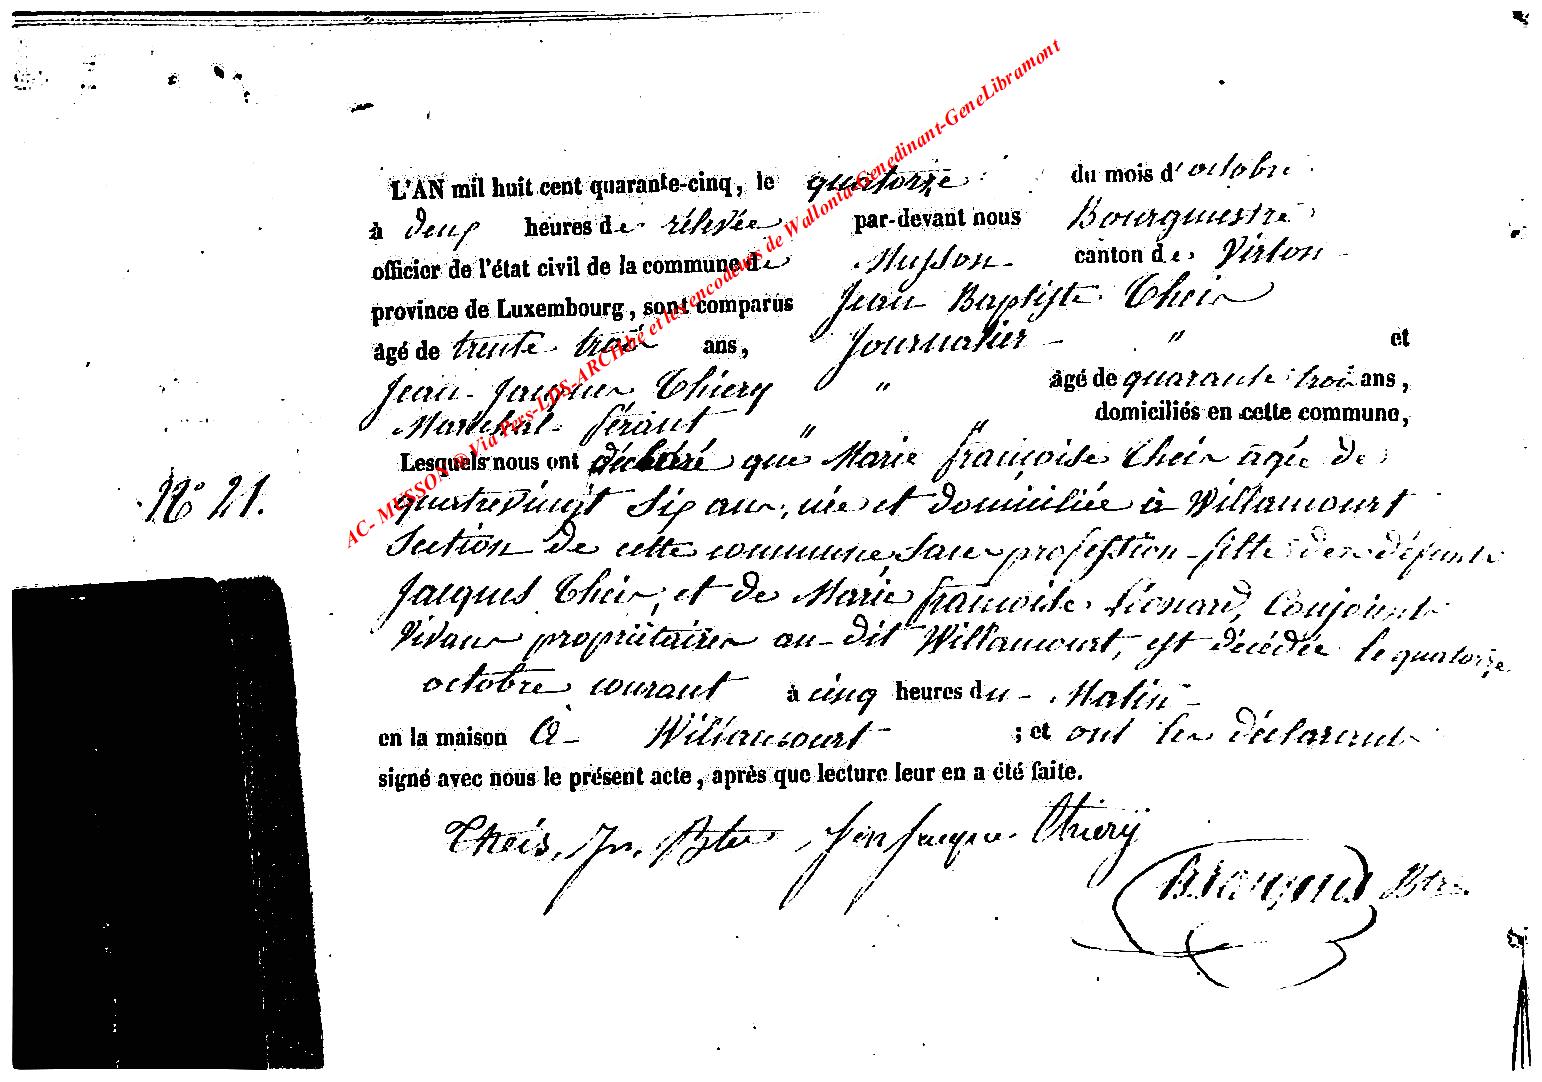 L'AN mil huit cent quarante-cinq, le quatorze du mois d'octobre
à deux heures de rélevée par-devant nous Bourguestre
officier de l'état civil de la commune de Musson canton de Virton
province de Luxembourg, sont comparus Jean Baptiste Theis
âgé de trente trois ans, Journalier " et
Jean Jacques Thiery " âgé de quarante trois ans,
Maréchal férant " " domiciliés en cette commune,
Lesquels nous ont déclaré que Marie françoise Theis agée de
N° 21.
quatrevingt six ans, née et domiciliée à Willancourt
Section de cette commune, sans profession fille des défunts
Jacques Theis, et de Marie françoise Léonard, Conjoints
Vivans propriétaires au-dit Willancourt, est décédée le quatorze
octobre courant à cinq heures du Matin
en la maison à Willancourt ; et ont les déclarants
signé avec nous le présent acte, après que lecture leur en a été faite.
Theis, Jn. Bte Jen Jacque Thiery
Btre
AC- MUSSON @Via Pers-LDS-ARCHbe et les encodeurs de Wallonia-Genedinant-GeneLibramont